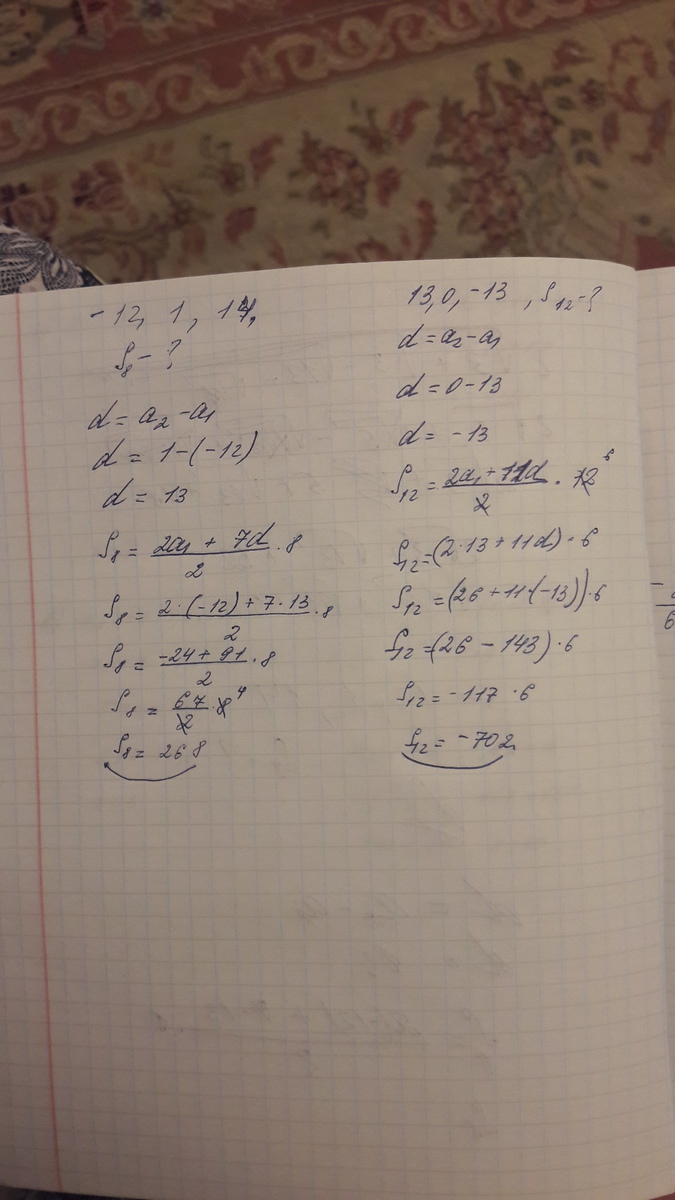 -12, 1, 14,
S₈ - ?
d = a₂ - a₁
d = 1 - (-12)
d = 13
S₈ = (2a₁ + 7d)/2 · 8
S₈ = (2·(-12) + 7·13)/2 · 8
S₈ = (-24 + 91)/2 · 8
S₈ = 67/2 · 8 4
S₈ = 268
13, 0, -13, S₁₂ - ?
d = a₂ - a₁
d = 0 - 13
d = -13
S₁₂ = (2a₁ + 11d)/2 · 12 6
S₁₂ = (2·13 + 11d) · 6
S₁₂ = (26 + 11·(-13)) · 6
S₁₂ = (26 - 143) · 6
S₁₂ = -117 · 6
S₁₂ = -702